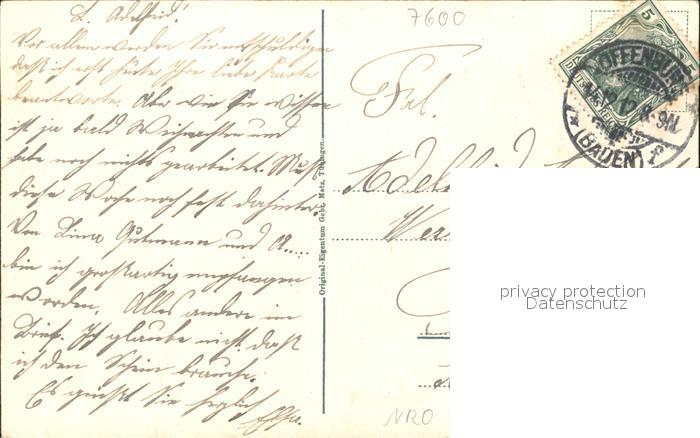 L. Adelheid!
Vor allem werden Sie entschuldigen
daß ich erst heute Ihre liebe Karte
beantworte. Aber wie Sie wissen
ist ja bald Weihnachten und
habe noch nichts gearbeitet. Muß
diese Woche noch fest dahinter.
Von Lina Gutmann und A....
bin ich großartig empfangen
worden. Alles andere im
Brief. Ich glaube nicht daß
ich den Schein brauche.
Es grüßt Sie herzlich
Original-Eigentum Gebr. Metz, Tübingen.
7600
Frl.
5
OFFENBURG
(BADEN)
privacy protection
Datenschutz
NRO